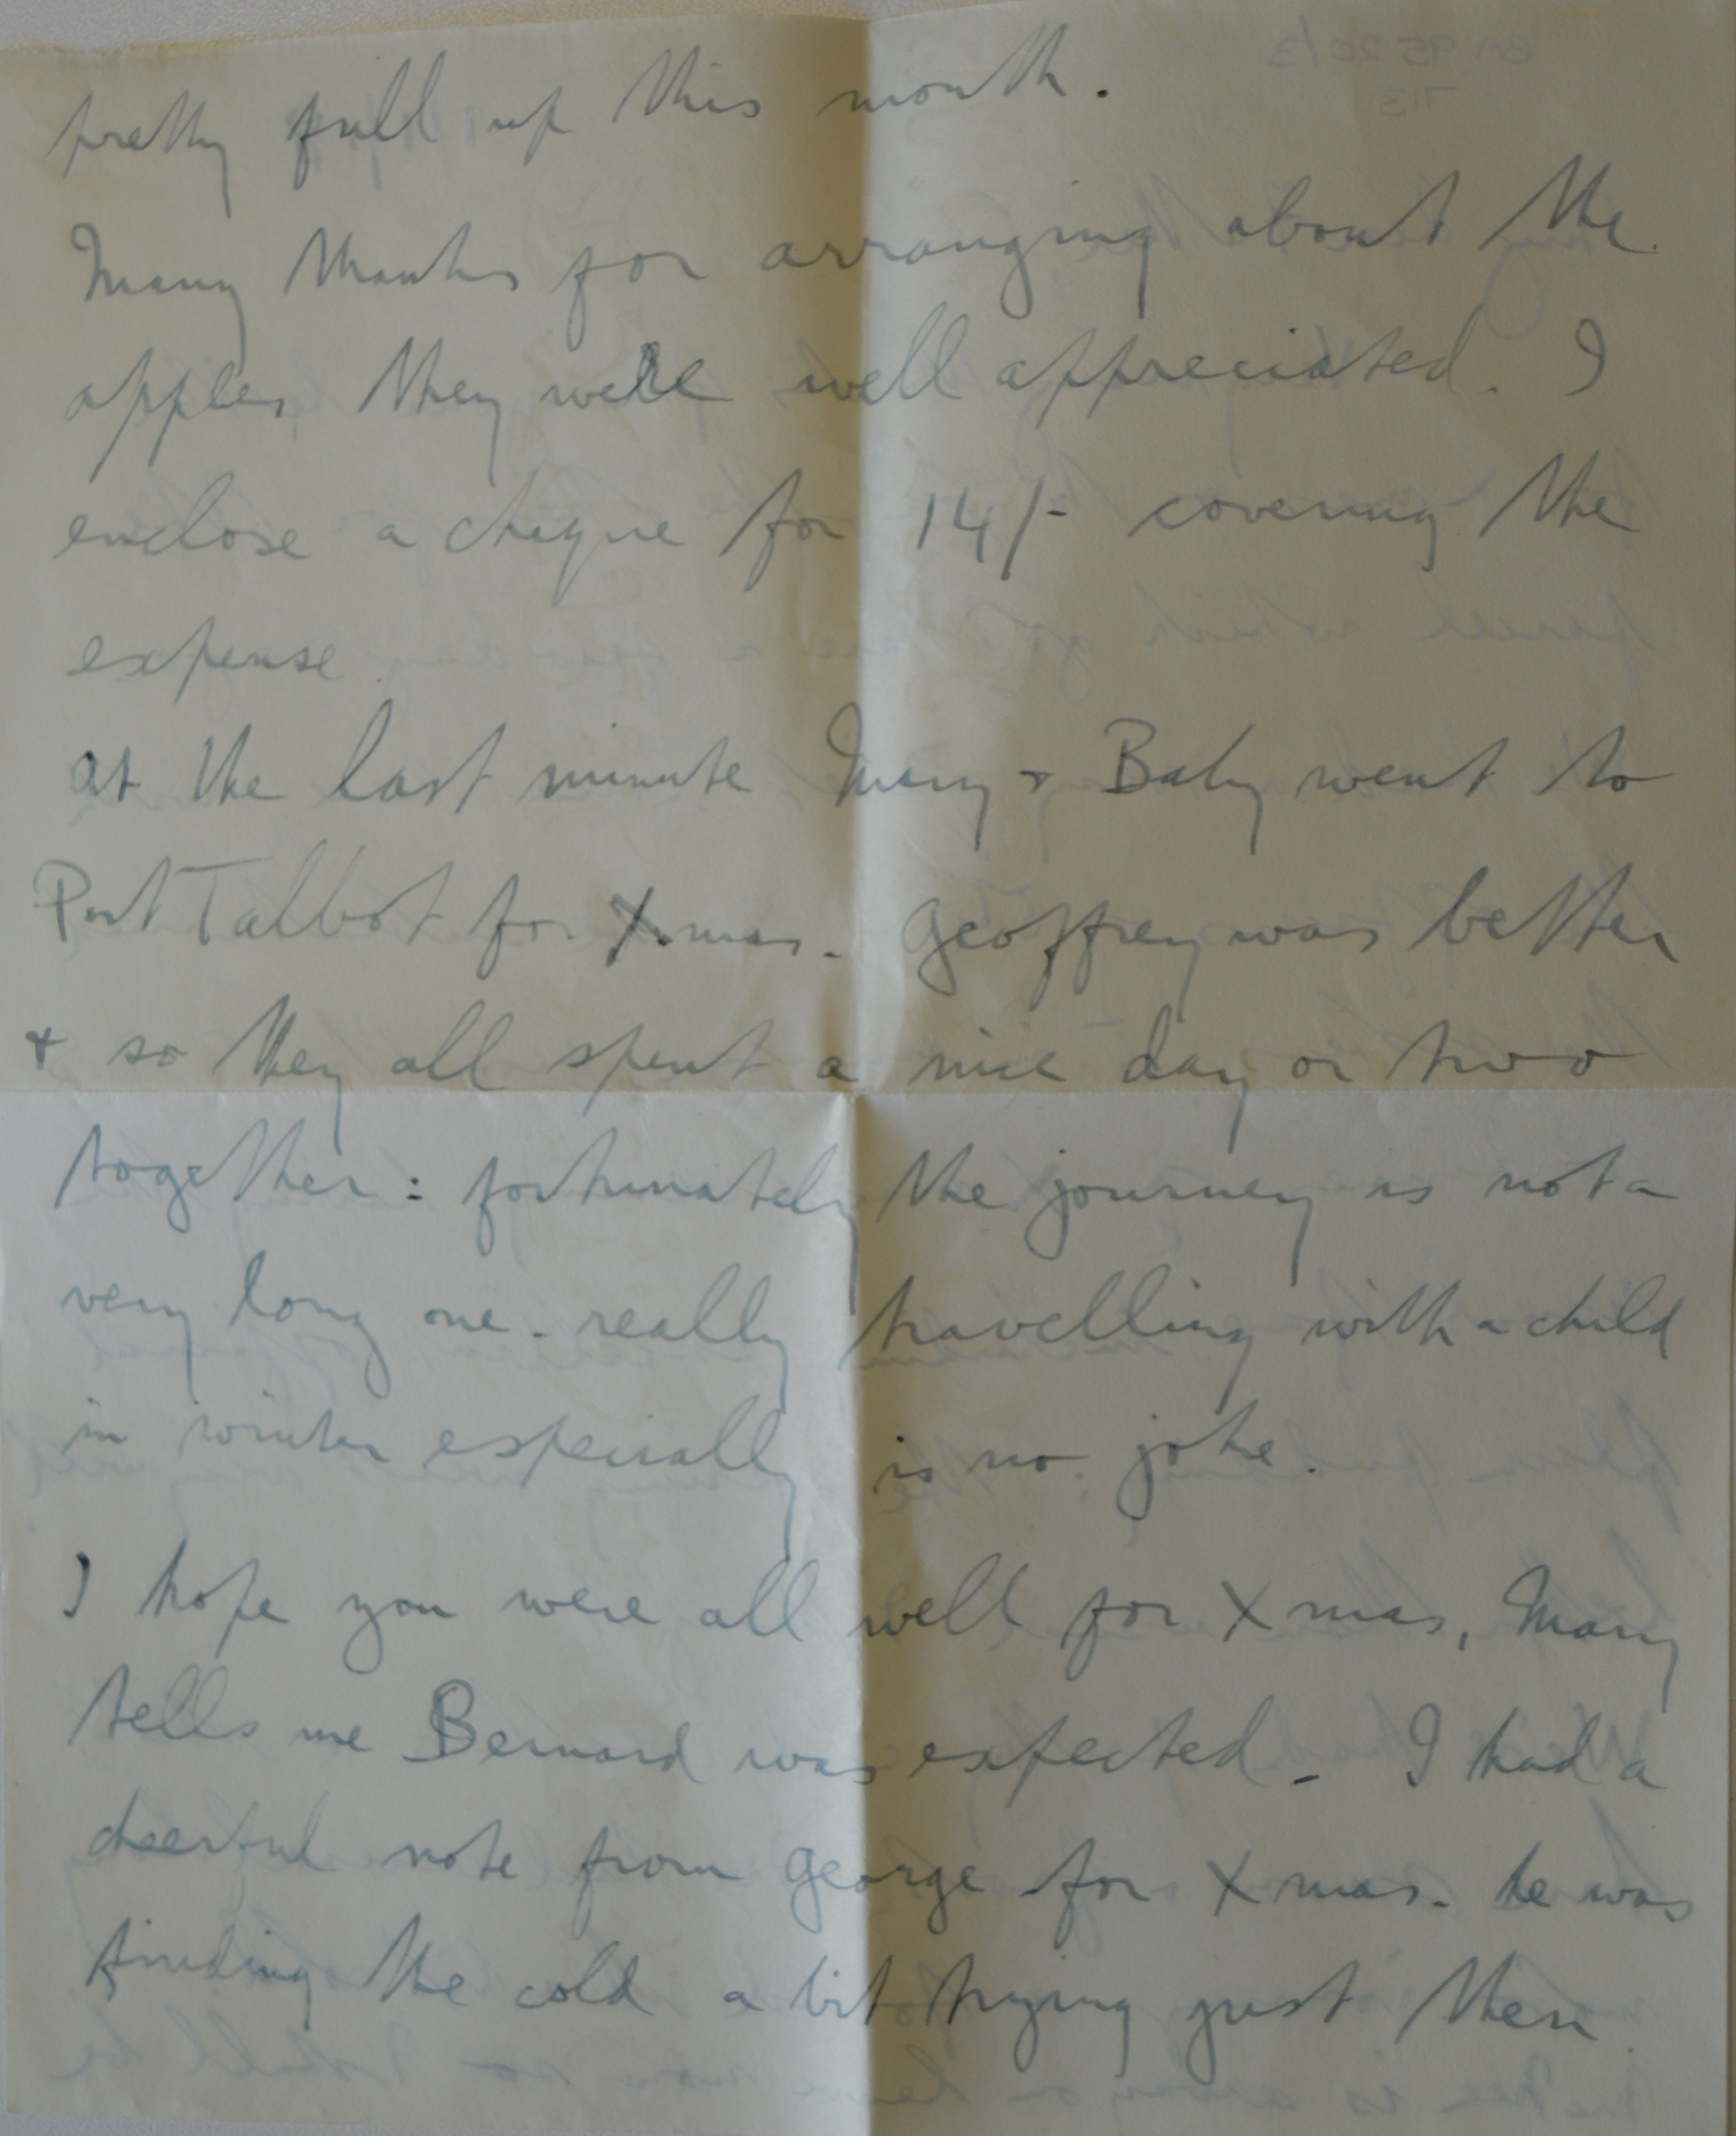 pretty full up this month.
Many thanks for arranging about the
apples they were well appreciated. I
enclose a cheque for 14/- covering the
expense.
at the last minute Mary + Baby went to
Port Talbot for Xmas. Geoffrey was better
+ so they all spent a nice day or two
together: fortunately the journey is not a
very long one - really travelling with a child
in winter especially is no joke.
I hope you were all well for Xmas, Mary
tells me Bernard was expected - I had a
cheerful note from George for Xmas - he was
finding the cold a bit trying just then.